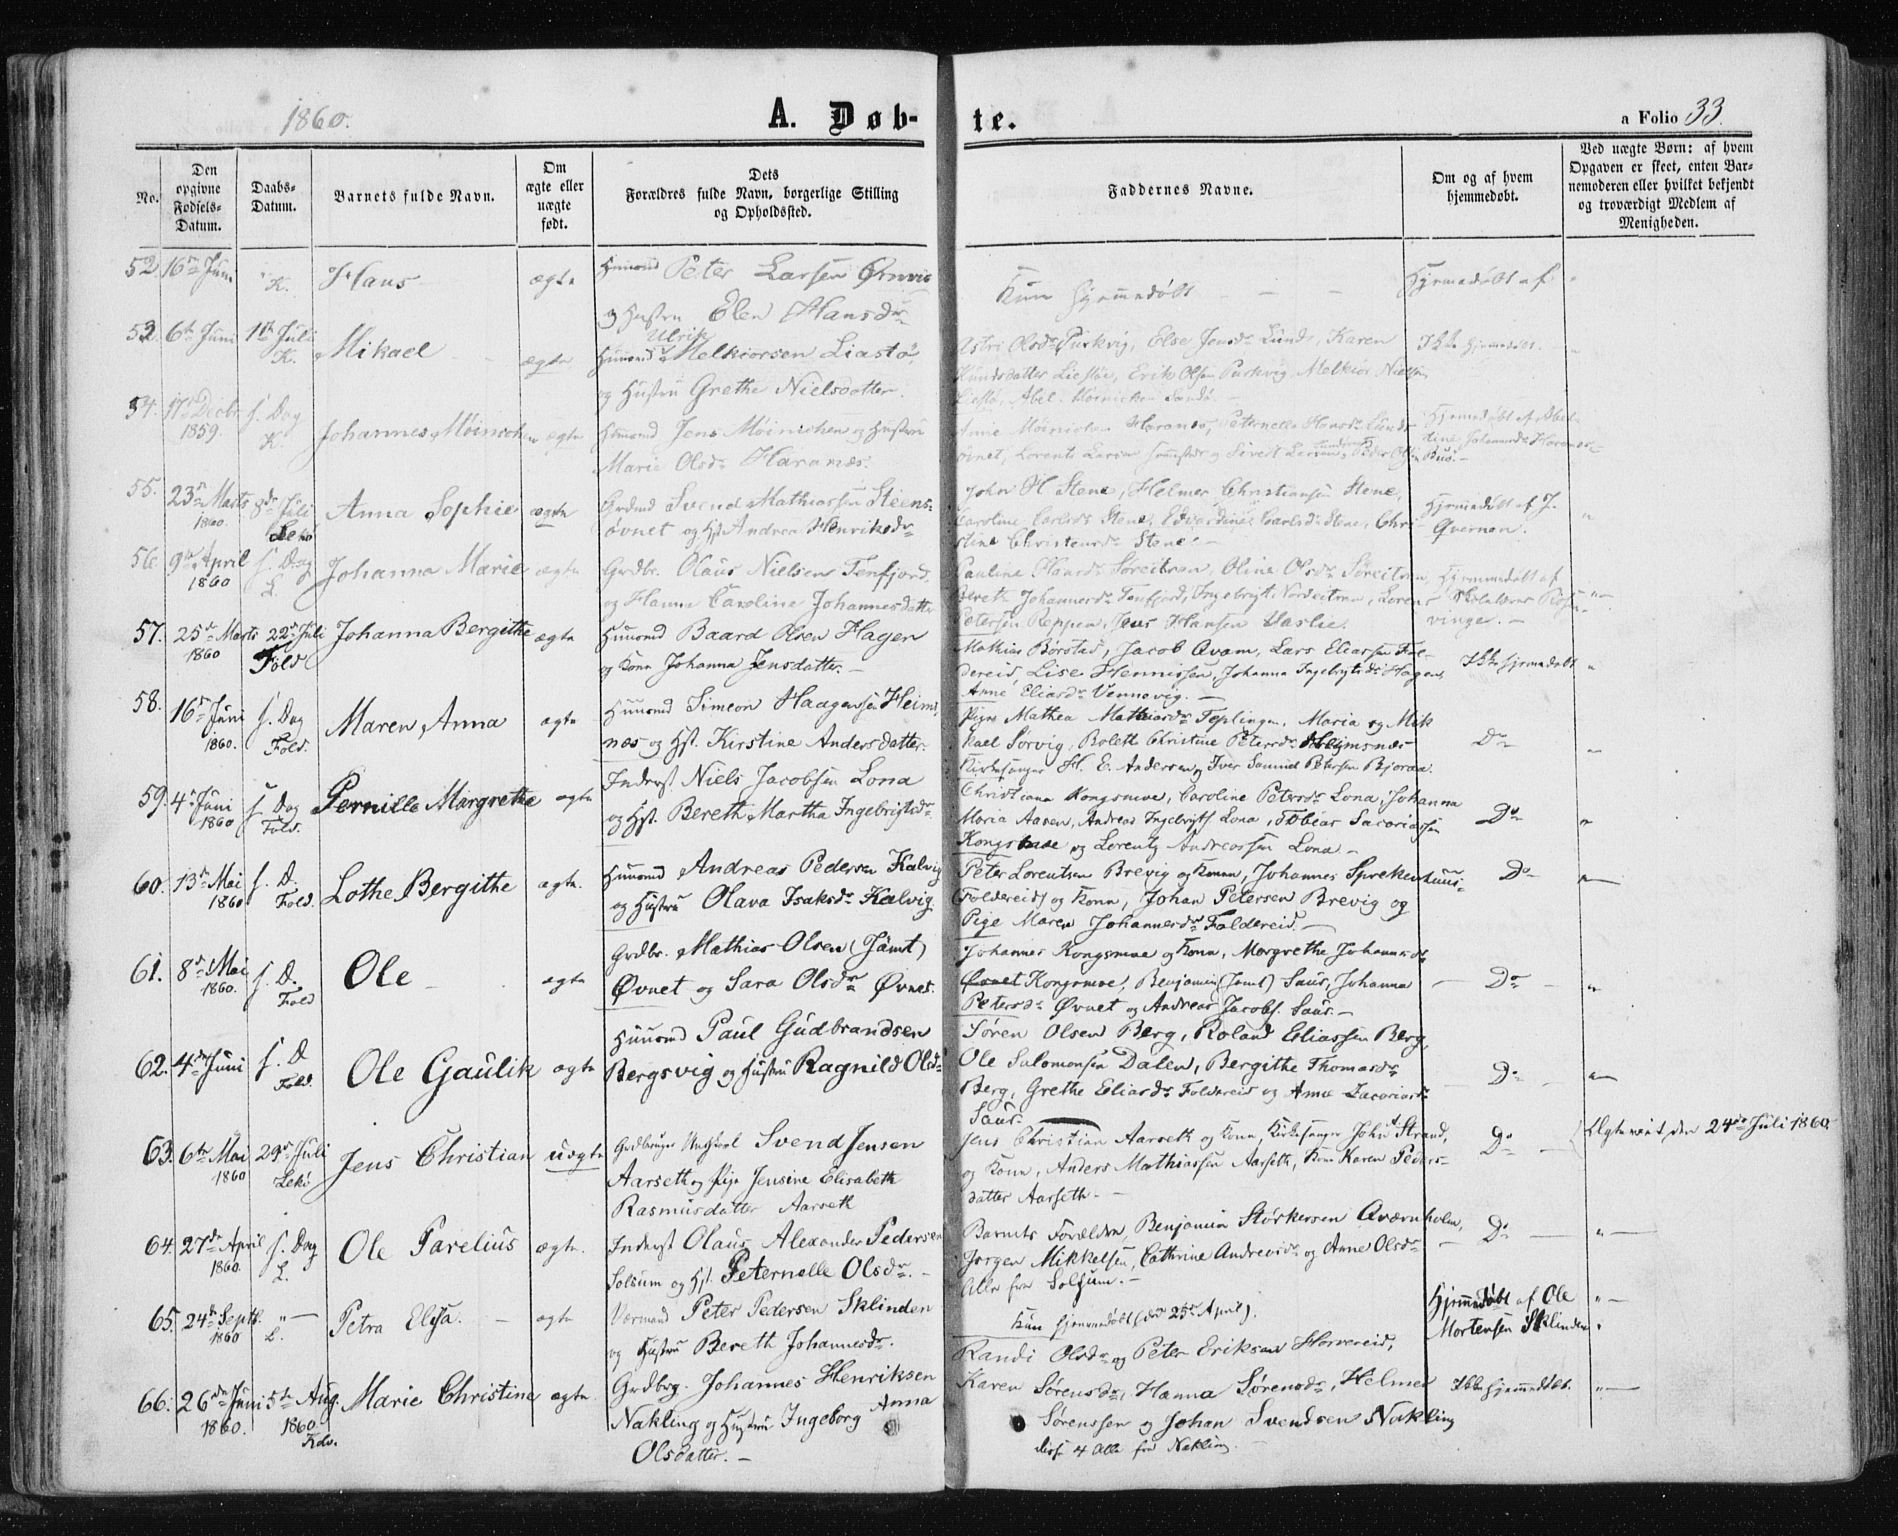 1860.
A. Døb-
te.
a Folio 33.
No.
Den opgivne Fødsels-Datum.
Daabs-Datum.
Barnets fulde Navn.
Om ægte eller uægte født.
Dets Forældres fulde Navn, borgerlige Stilling og Opholdssted.
Faddernes Navne.
Om og af hvem hjemmedøbt.
Ved uægte Børn: af hvem Opgaven er skeet, enten Barnemoderen eller hvilket bekjendt og troværdigt Medlem af Menigheden.
52. 16de Juni " K. Hans ægte Huusmd Peter Larsen Ørnvig
og Hustru Elen Hansdr
Kun hjemmedøbt — — — Hjemmedøbt af "
53. 6te Juni 11te Juli K. Mikael ægte Huusmd Ulrik Melkiorsen Liastø
og Hustru Grethe Nielsdatter.
Astri Olsdr Purkvig, Else Jensdr Lund, Karen
Erik Olsen Purkvig, Melkior Nielsen
Ikke hjemmedøbt.
54. 17de Decbr 1859. s. Dag K. Johannes Møinichen ægte Huusmd Jens Møinichen og Hustru
Marie Olsdr Haranæs.
Anne Møinichen Haranæs, Peternelle Hansdr Lund
Hjemmedøbt af
55. 23de Marts 1860. 8de Juli Lekø Anna Sophie ægte Grdmd Svend Mathiassen Steens-
øvnet og Hst Andrea Henriksdr
John H Stene, Helmer Christiansen Stene,
Caroline Carlsdr Stene, Edvardine Carlsdr Stene, Chri-
stine Christensdr Stene. —
Hjemmedøbt af J.
Qvernen. "
56. 9de April 1860 s. Dag L. Johanna Marie ægte Grdbr. Olaus Nielsen Tenfjord
og Hanna Caroline Johannesdatter
Pauline Haardr Søreitran, Oline Olsdr Søreitran,
Bereth Johannesdr Tenfjord, Ingebrigt Nordeitran, Lorens
Petersen Reppen, Jens Hansen Haslie.
Hjemmedøbt af
Skolelærer Rosen-
vinge. —
57. 25de Marts 1860 22de Juli Fold. Johanna Bergithe ægte Huusmd Baard Olsen Hagen
og Kone Johanna Jensdatter. —
Mathias Børstad, Jacob Qvam, Lars Eliasen Fol-
dereid, Lise Hennissen, Johanna Ingebrigtsdr Hagen,
Anne Eliasdr Vennevig. —
Ikke hjemmedøbt "
58. 16de Juni 1860. s. Dag Fold. Maren Anna ægte Huusmd Simeon Haagensen Heims
næs og Hst. Kirstine Andersdatter.
Pige Mathea Mathiasdr Teplingen, Maria og Mik
kael Sørvig, Boleth Christine Petersdr Heimsnæs
Kirkesanger H. E. Andersen og Iver Samuel Petersen Bjoraa.
Do "
59. 4de Juni 1860 s. Dag Fold. Pernille Margrethe ægte Inderst Niels Jacobsen Lona
og Hst. Bereth Martha Ingebrigtsdr
Christiana Kongsmoe, Caroline Petersdr Lona, Johanna
Maria Aasen, Andreas Ingebrigts. Lona, Tobias Sacariassen
Kongsmoe og Lorents Andreassen Lona —
Do "
60. 13de Mai 1860 s. D. Fold. Lothe Bergithe ægte. Huusmd Andreas Pedersen Kalvig
og Hustru Olava Isaksdr Kalvig
Peter Lorentsen Brevig og Konen, Johannes Sprekenhuus-
Foldereid og Kone, Johan Petersen Brevig og
Pige Maren Johannesdr Foldereid. —
Do "
61. 8de Mai 1860. s. D. Fold Ole ægte Grdbr. Mathias Olsen (Jämt)
Øvnet og Sara Olsdr Øvnet.
Johannes Kongsmoe og Kone, Margrethe Johannesdr
Øvnet Kongsmoe, Benjamin (Jämt) Saus, Johanna
Petersdr Øvnet og Andreas Jacobs. Saus. —
Do "
62. 4de Juni s. D Fold. Ole Gaulik ægte Huusmd Paul Gudbrandsen
Bergsvig og Hustru Ragnild Olsdr
Søren Olsen Berg, Roland Eliassen Berg,
Ole Salomonsen Dalen, Bergithe Thomasdr
Berg, Grethe Eliasdr Foldereid og Anne Zacariasdr
Saus.
Do "
63. 6te Mai 1860 29de Juli Lekø Jens Christian uægte Grdbruger Ungkarl Svend Jensen
Aarseth og Pige Jensine Elisabeth
Rasmusdatter Aarseth
Jens Christian Aarseth og Kone, Kirkesanger John Strand,
og Kone, Anders Mathiassen Aarseth, Kone Karen Peders-
datter Aarseth. —
Do Ægteviet den 24de Juli 1860.
64. 27de April 1860. s. Dag L. Ole Parelius ægte. Inderst Olaus Alexander Pedersen
Solsum og Hst. Peternelle Olsdr. —
Barnets Forældre, Benjamin Størkersen Qværnholm,
Jørgen Mikkelsen, Cathrine Andreasdr og Anne Olsdr
Alle fra Solsum. —
Do "
65. 24de Septb. 1860 " L. Petra Elisa. — ægte Værmand Peter Pedersen Sklinden
og Hustru Bereth Johannesdr.
Kun hjemmedøbt (den 25de April).
Hjemmedøbt af Ole
Mortensen Sklinden "
66. 26de Juni 1860. 5te Aug. 1860 Kolv. Marie Christine ægte. Grdbrg. Johannes Henriksen
Nakling og Hustru Ingeborg Anna
Olsdatter. —
Randi Olsdr og Peter Eriksen Horvereid,
Karen Sørensdr, Hanna Sørensdr, Helmer
Sørenssen og Johan Svendsen Nakling
disse 4 Alle fra Nakling. —
Ikke hjemmedøbt. "